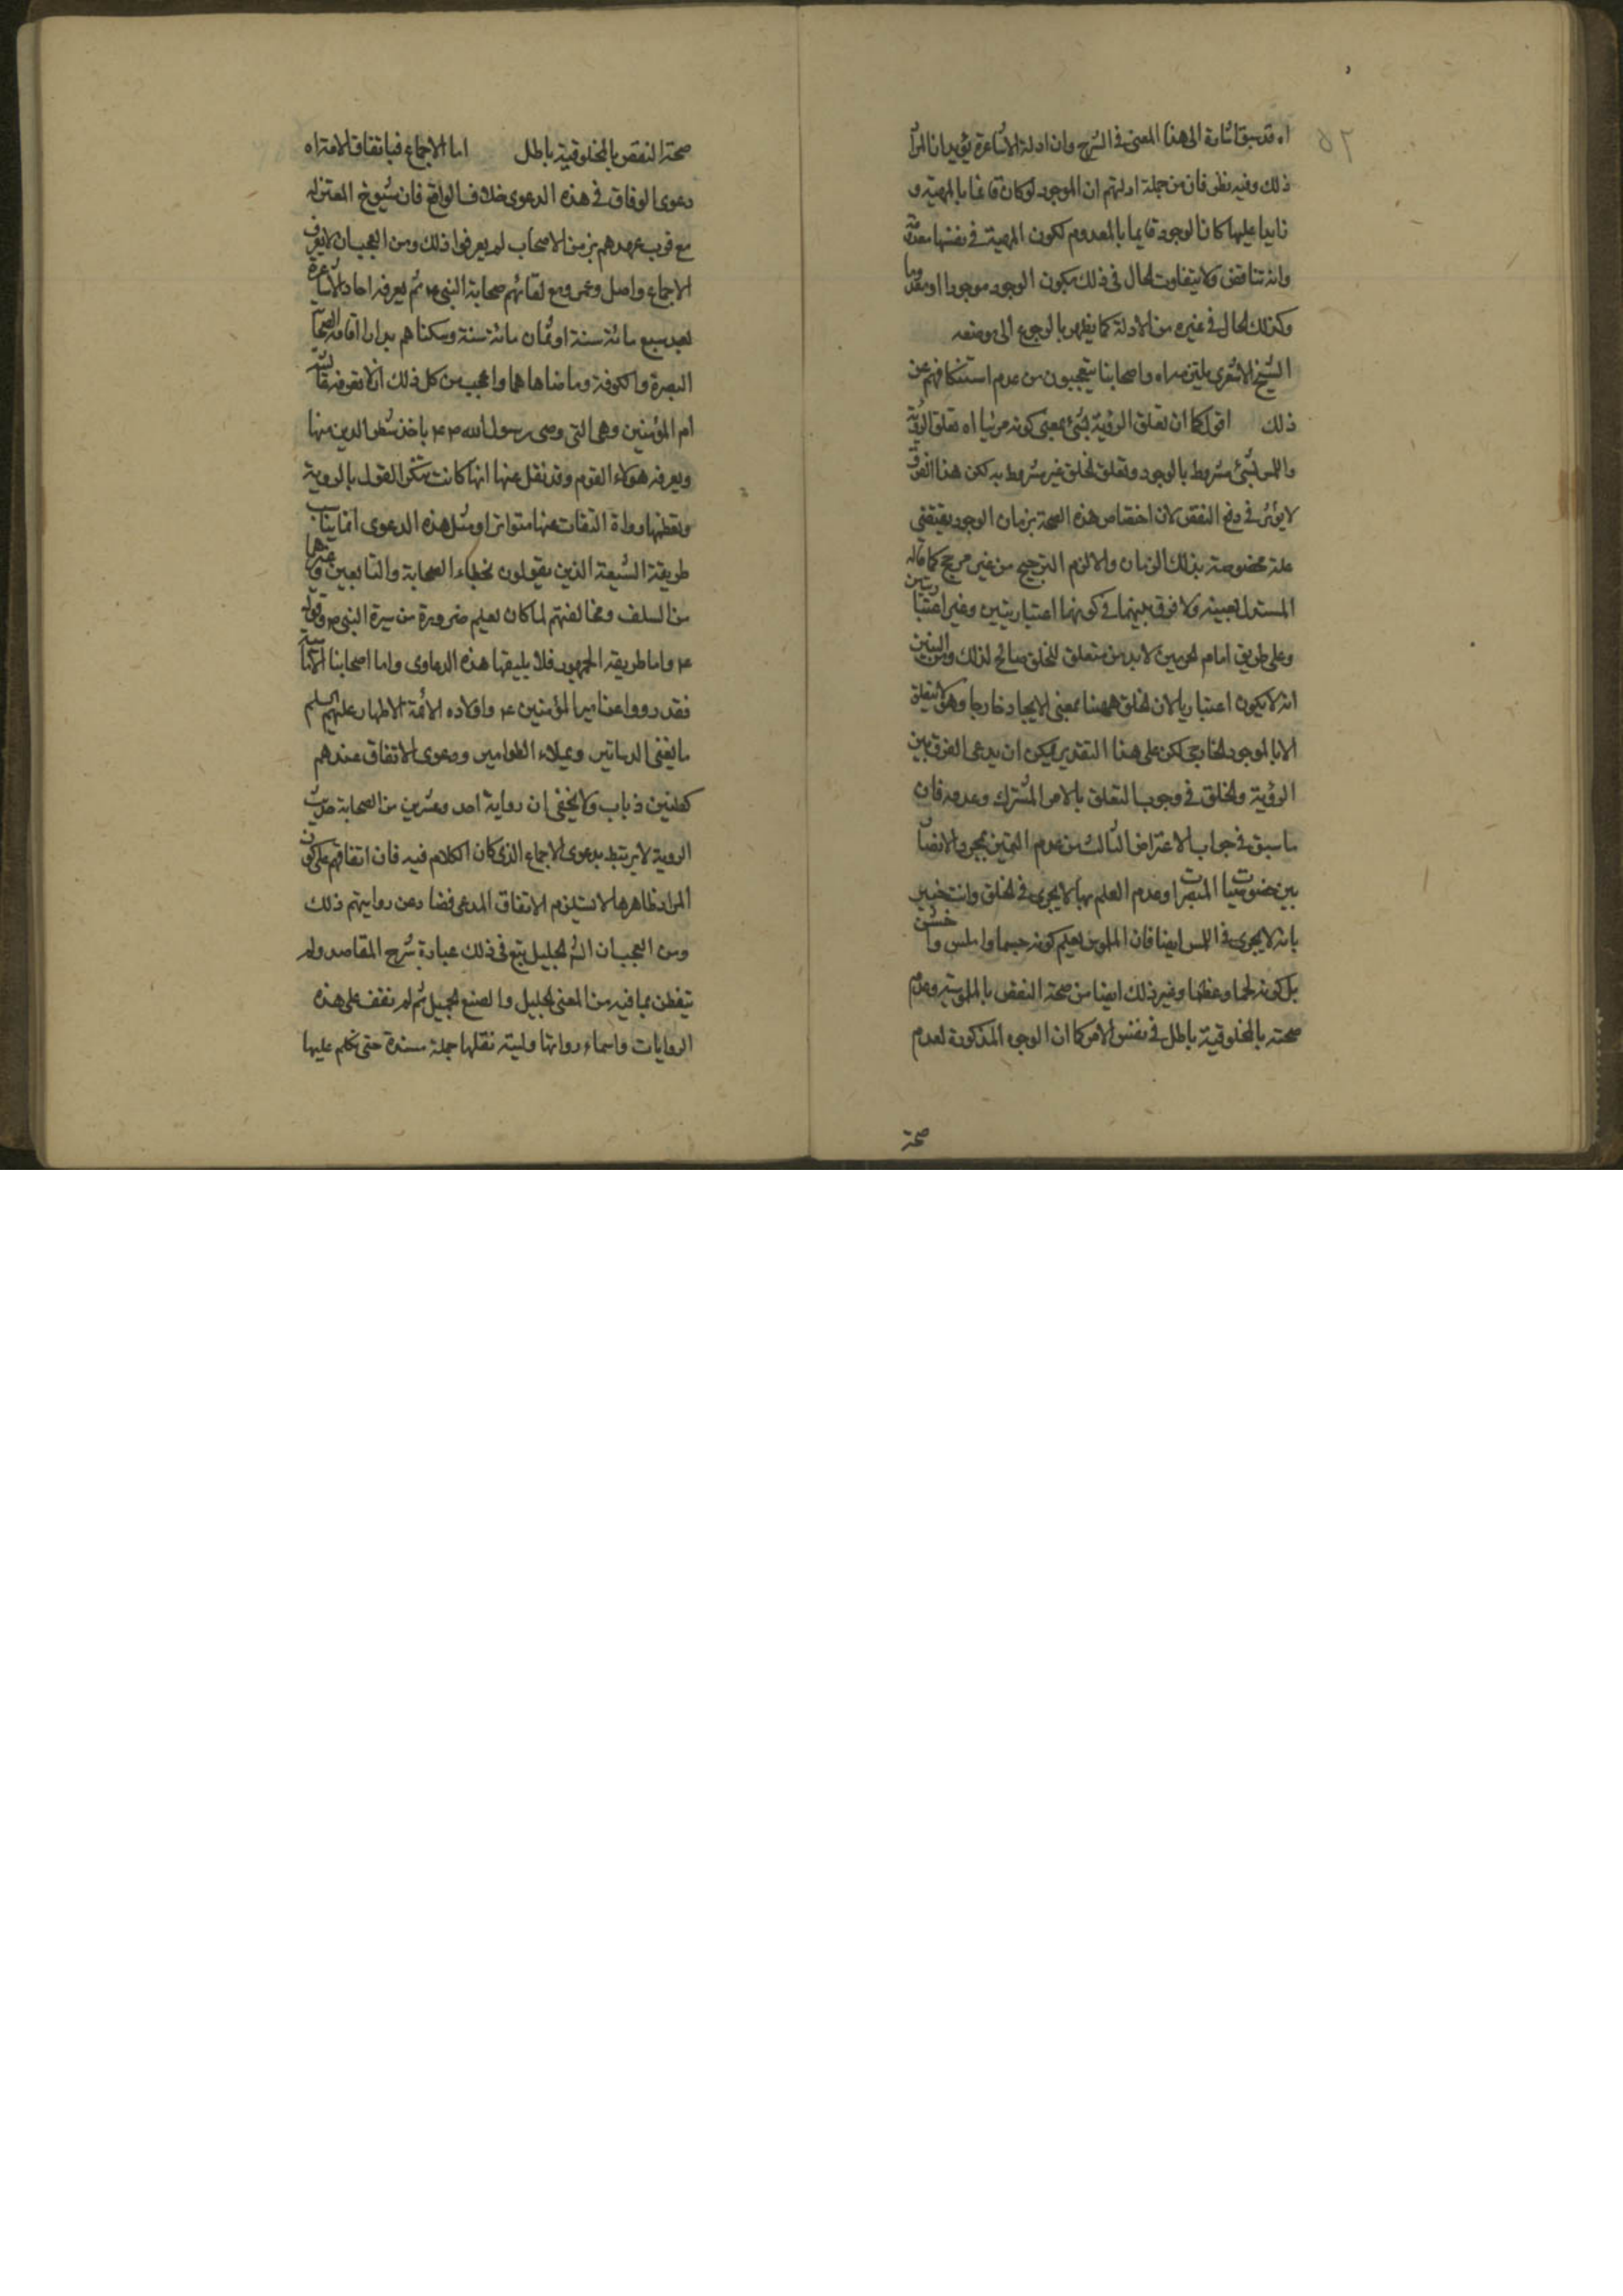 اه قد سبق اشارة الى هذا المعنى فى الشرح وان ادلة الاشاعرة يؤيد ان المراد
ذلك وفيه نظر فان من جملة ادلتهم ان الوجود لو كان قائما بالمهية و
زايدا عليها كان الوجود قايما بالمعدوم لكون المهية فى نفسها معدومة
وانه تناقض ولا يتفاوت الحال فى ذلك بكون الوجود موجودا او معدوما
وكذلك الحال فى غيره من الادلة كما يظهر بالرجوع الى موضعه
الشيخ الاشعرى يلتزمه اه واصحابنا يتعجبون من عدم استنكافهم عن
ذلك اقول كما ان تعلق الرؤية بشئ بمعنى كونه مرئيا اه تعلق الرؤية
واللمس بشئ مشروط بالوجود وتعلق الخلق غير مشروط به لكن هذا الفرق
لا يؤثر فى دفع النقض لان اختصاص هذه الصحة بزمان الوجود يقتضى
علة مخصوصة بذلك الزمان والا لزم الترجيح من غير مرجح كما قاله
المستدل بعينه ولا فرق بينهما فى كونهما اعتباريتين وغير اعتباريتين
وعلى طريق امام الحرمين لا بد من متعلق للخلق صالح لذلك ومن البين
انه لا يكون اعتباريا لان الخلق ههنا بمعنى الايجاد خارجا وهو لا يتعلق
الا بالموجود الخارجى لكن على هذا التقدير يمكن ان يدعى الفرق بين
الرؤية والخلق فى وجوب التعلق بالامر المشترك وعدمه فان
ما سبق فى جواب الاعتراض الثالث من عدم التميز بمجرد الابصار
بين خصوصيات المبصرات وعدم العلم بها لا يجرى فى الخلق وانت خبير
بانه لا يجرى فى اللمس ايضا فان الملموس يعلم كونه جسما واملس وخشن
بل كونه لحما وعظما وغير ذلك ايضا من صحة النقض بالملموسية وعدم
صحته بالمخلوقية باطل فى نفس الامر كما ان الوجه المذكورة لعدم
صحة
صحة النقض بالمخلوقية باطل اما الاجماع فباتفاق الامة اه
دعوى الوفاق فى هذه الدعوى خلاف الواقع فان شيوخ المعتزله
مع قرب عهدهم بزمن الاصحاب لم يعرفوا ذلك ومن العجب ان لا يعرف
الاجماع واصل وعمرو مع لقائهم صحابة النبى ص ثم يعرفه احاد الاشاعرة
بعد سبع مائة سنة او ثمان مائة سنة وسكناهم بدار اقامة الصحابة
البصرة والكوفة وما ضاهاهما واعجب من كل ذلك ان لا تعرفه عائشه
ام المؤمنين وهى التى وصى رسول الله ص باخذ شطر الدين منها
ويعرفه هؤلاء القوم وقد نقل عنها انها كانت تنكر القول بالروية
من السلف ومخالفتهم لما كان يعلم ضرورة من سيرة النبى ص وقوله
طريقة الشيعة الذين يقولون بخطاء الصحابة والتابعين وغيرها
ص واما طريقة الجمهور فلا يليقها هذه الدعاوى واما اصحابنا الامامية
فقد رووا عن امير المؤمنين ع واولاده الائمة الاطهار عليهم السلم
ما يفنى الدساتير ويملاء الطوامير ودعوى الاتفاق عندهم
كطنين ذباب ولا يخفى ان رواية احد وعشرين من الصحابة حديث
الروية لا يرتبط بدعوى الاجماع الذى كان الكلام فيه فان اتفاقهم على كون
المراد ظاهرها لا يستلزم الاتفاق المدعى فضلا عن روايتهم ذلك
ومن العجب ان الش الجليل تبع فى ذلك عبارة شرح المقاصد ولم
يتفطن بما فيه من المعنى الجليل والصنع الجميل ثم لم نقف على هذه
الروايات واسماء رواتها وليته نقلها جملة مسندة حتى نتكلم عليها